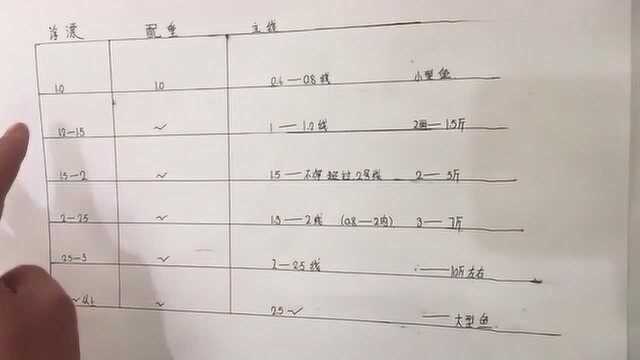 浮漂 配重 主线
1.0 1.0 0.6—0.8线 小型鱼
1.0—1.5 ~ 1—1.2线 2两—1.5斤
1.5—2 ~ 1.5—不够超过2号线 2—3斤
2—2.5 ~ 1.5—2线 (0.8—2内) 3—7斤
2.5—3 ~ 2—2.5线 —10斤左右
~ 2.5~ —大型鱼